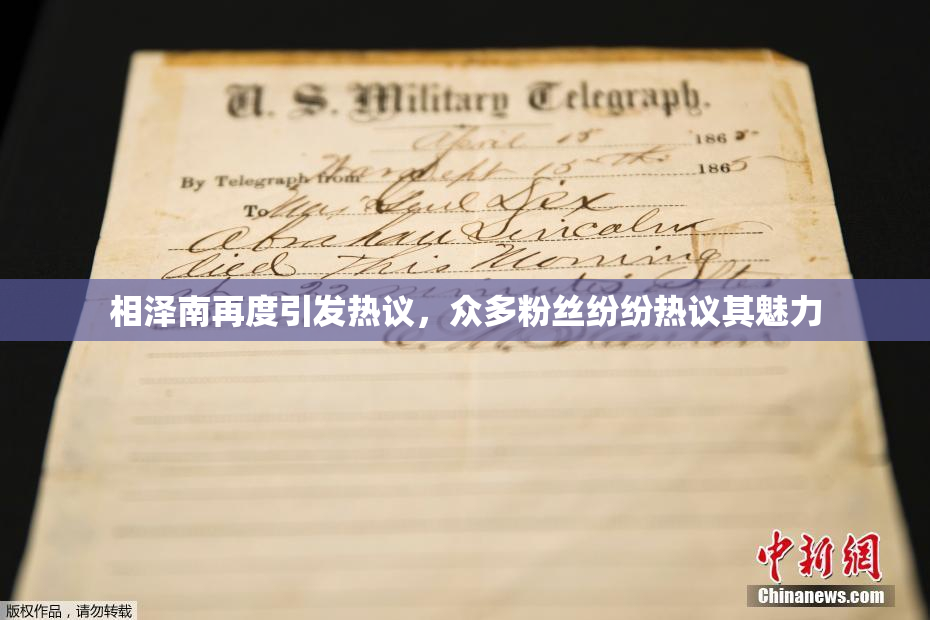 U. S. Military Telegraph.
April 15 1865
By Telegraph from War Dept 15th 1865
To Maj Genl Dix
Abraham Lincoln
died This Morning
at 22 minutes after
相泽南再度引发热议，众多粉丝纷纷热议其魅力
E. M. Stanton
中新網
Chinanews.com
版权作品，请勿转载